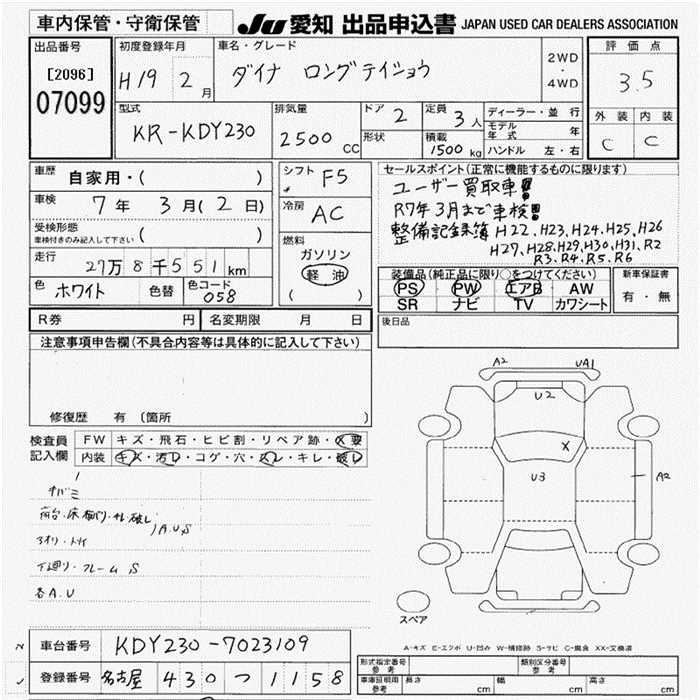 車内保管・守衛保管
JU 愛知 出品申込書 JAPAN USED CAR DEALERS ASSOCIATION
出品番号
[2096]
07099
初度登録年月
H19 2月
車名・グレード
ダイナ ロングテイショウ
2WD
・
4WD
評価点
3.5
外装 内装
C C
型式
KR-KDY230
排気量
2500 CC
ドア 2
形状
定員 3人
積載 1500kg
ディーラー・並行
モデル年式 年
ハンドル 左・右
車歴
自家用・( )
車検
7年 3月(2日)
受検形態
車検付きのみ記入して下さい ( )
走行
27万8千551km
色 ホワイト 色替 色コード 058
シフト F5
冷房 AC
燃料
ガソリン
軽油
( )
セールスポイント(正常に機能するものに限ります)
ユーザー買取車!!
R7年3月まで車検!!
整備記録簿 H22, H23, H24, H25, H26
H27, H28, H29, H30, H31, R2
R3. R4. R5. R6
装備品(純正品に限り○をつけてください)
PS PW エアB AW
SR ナビ TV カワシート
新車保証書
有・無
R券 円 名変期限 月 日
後日品
注意事項申告欄(不具合内容等は具体的に記入して下さい)
修復歴 有 〔箇所 〕
検査員記入欄
FW キズ・飛石・ヒビ割・リペア跡・X要
内装 キズ・汚レ・コゲ・穴・スレ・キレ・破レ
サバミ
荷台・床
A.U.S
下廻り・フレーム S
各A.U
A2 UA1
U2
X
U3
A2
スペア
A-キズ E-エクボ U-凹み W-補修跡 S-サビ C-腐食 XX-交換済
車台番号 KDY230-7023109
登録番号 名古屋 430 つ 1158
形式指定番号 参考
類別区分番号 参考
車庫証明用 参考 長さ cm 幅 cm 高さ cm